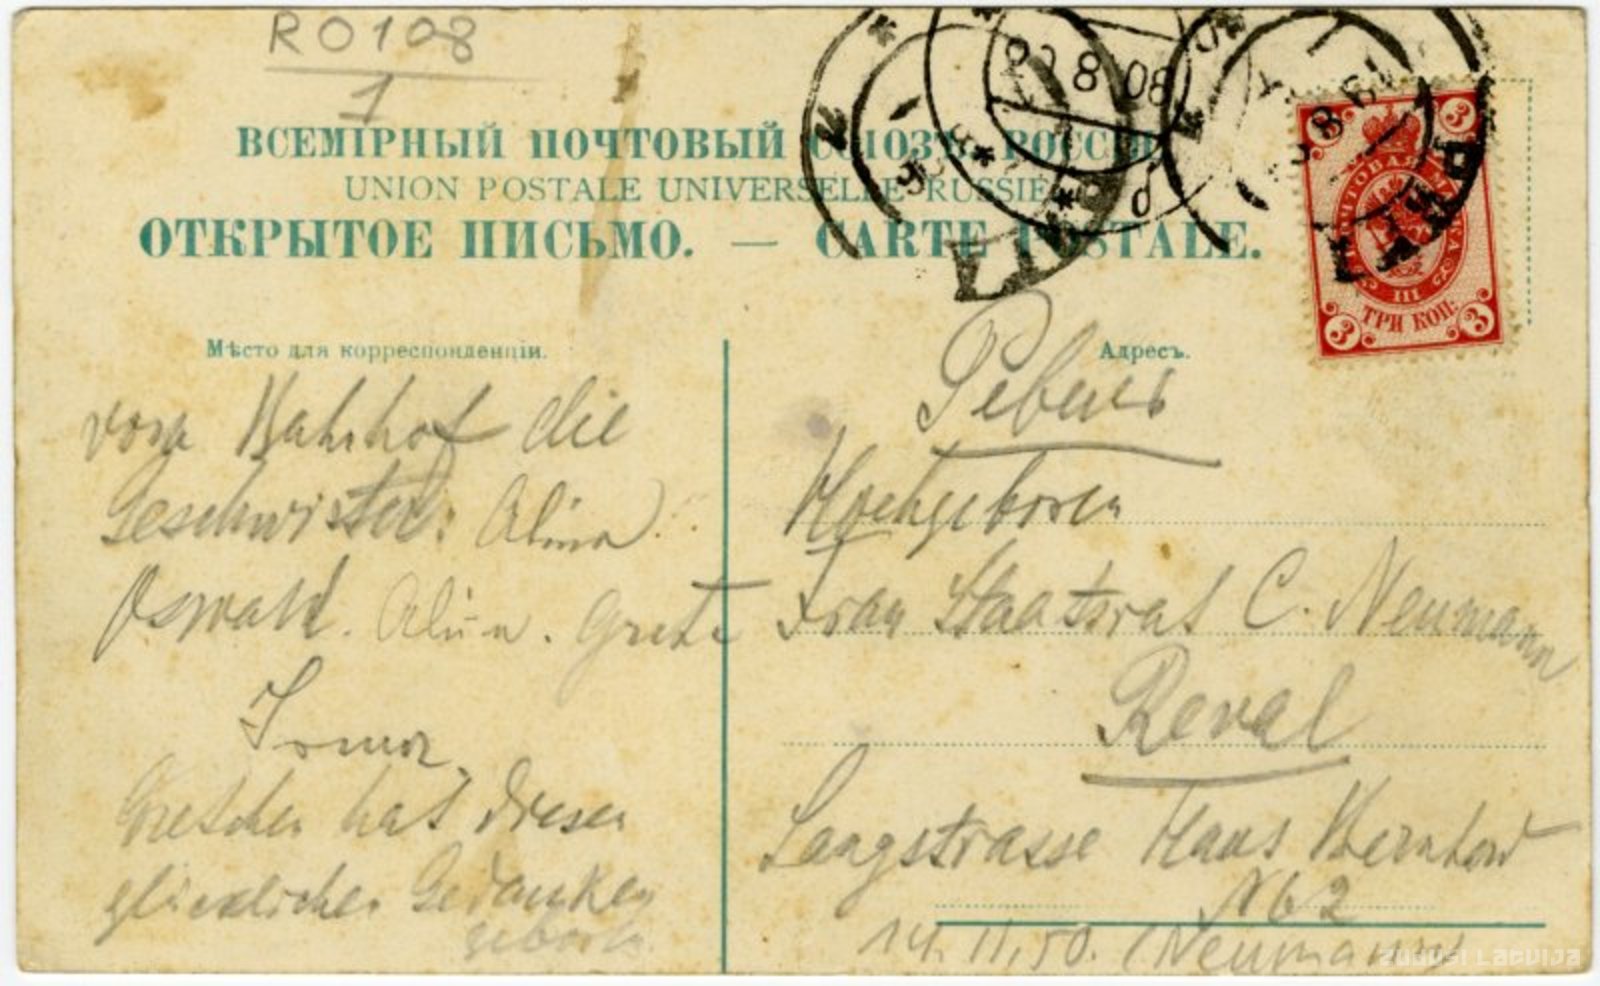 RO108
1
ВСЕМІРНЫЙ ПОЧТОВЫЙ СОЮЗЪ. РОССІЯ
UNION POSTALE UNIVERSELLE. RUSSIE
ОТКРЫТОЕ ПИСЬМО. — CARTE POSTALE.
8 08
3
3
ПОЧТОВАЯ МАРКА
III
ТРИ КОП.
3
3
Мѣсто для корреспонденціи.
vom Bahnhof die
Geschwister: Alma.
Oswald. Grete
Irma
Gretchen hat diesen
glücklichen Gedanken
Адресъ.
Ревель
Hochgeboren
Frau Staatsrat C. Neumann
Reval
Langstrasse Haus
N 62
14. II. 50. (Neumann)
zudusi Latvija